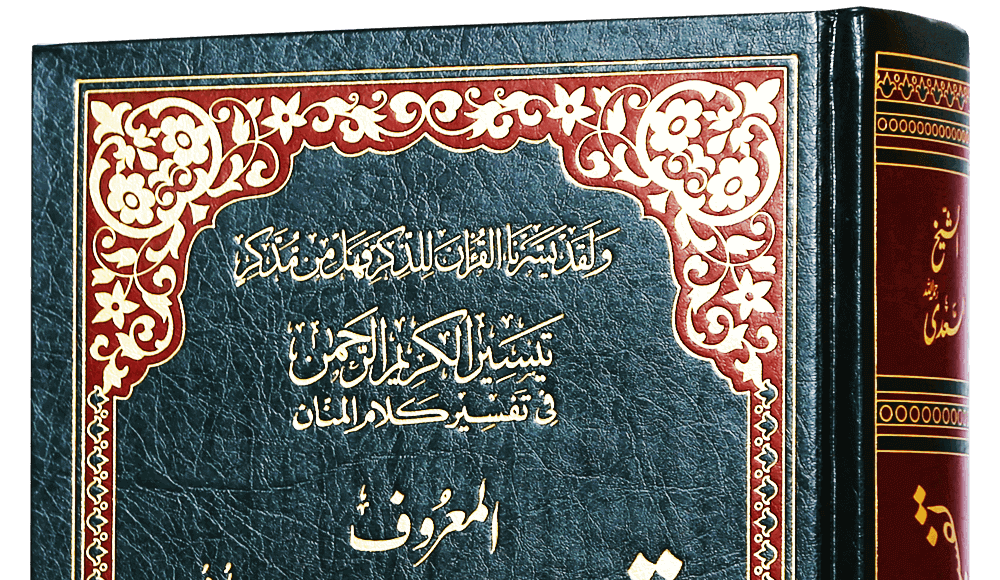 ولقد يسرنا القرآن للذكر فهل من مدكر
تيسير الكريم الرحمن
في تفسير كلام المنان
المعروف
الشيخ
سعدی